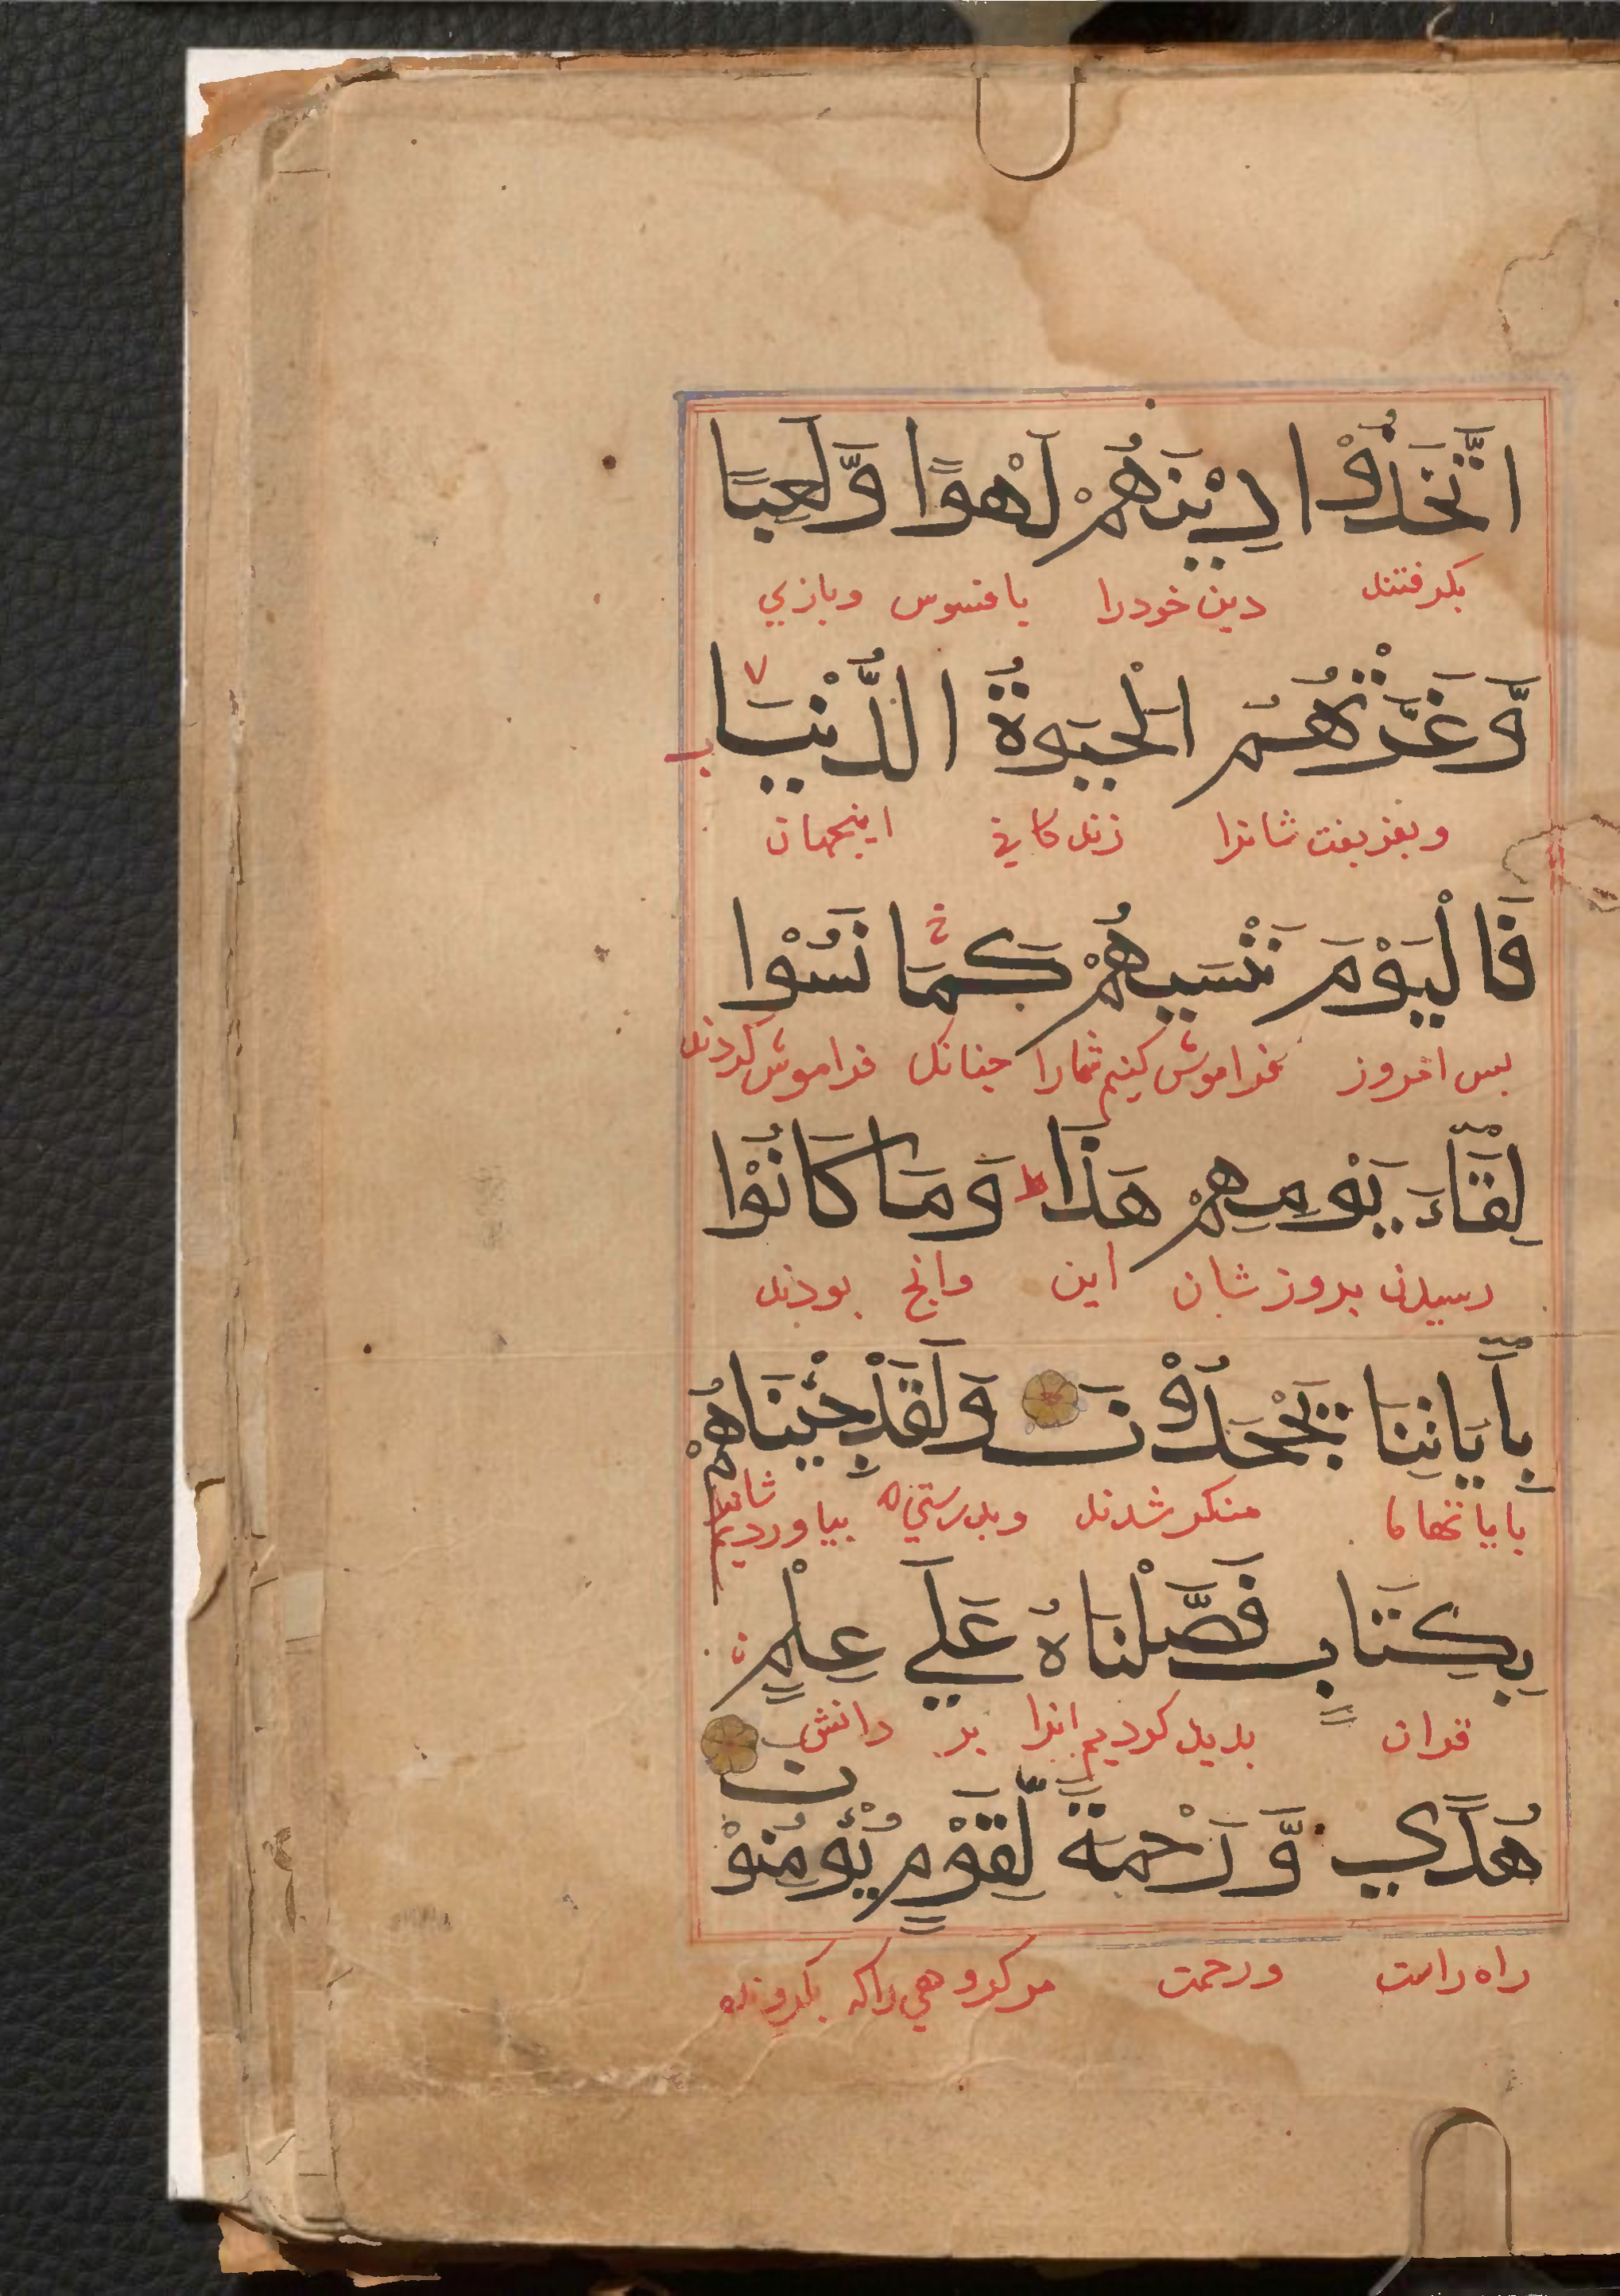 اتَّخَذُوْا دِيْنَهُمْ لَهْوًا وَّلَعِبًا
بكرفتند دين خودرا بافسوس وبازي
وَّغَرَّتْهُمُ الْحَيٰوةُ الدُّنْيَا
وبفريفت شانرا زندكاني اينجهان
فَالْيَوْمَ نَنْسٰيهُمْ كَمَا نَسُوْا
بس امروز فراموش كنيم شمارا جنانك فراموش كردند
لِقَآءَ يَوْمِهِمْ هَذَا ط وَمَا كَانُوْا
رسيدن بروز شان اين وانج بودند
بِاٰيَاتِنَا يَجْحَدُوْنَ وَلَقَدْ جِئْنَاهُمْ
باياتهاما منكر شدند وبدرستي بياورديم شانرا
بِكِتَابٍ فَصَّلْنَاهُ عَلَي عِلْمٍ
قران بديد كرديم انرا بر دانش
هُدًي وَّرَحْمَةً لِّقَوْمٍ يُؤْمِنُوْنَ
راه راست ورحمت مر كروهي راكه بكروند